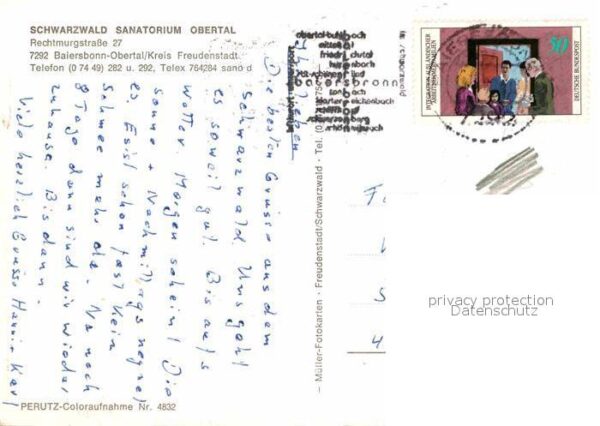 SCHWARZWALD SANATORIUM OBERTAL
Rechtmurgstraße 27
7292 Baiersbronn-Obertal/Kreis Freudenstadt
Telefon (0 74 49) 282 u. 292, Telex 764284 sana d
Ihr Lieben
Die besten Grüsse aus dem
Schwarzwald. Uns geht
es soweit gut. Bis aufs
Wetter. Morgen scheint Die
Sonne + Nachmittags regnet
es. Es ist schon fast kein
Schnee mehr da. Na noch
8 Tage dann sind wir wieder
zuhause. Bis dann.
Viele herzlich Grüsse Hanni + Karl
PERUTZ-Coloraufnahme Nr. 4832
– Müller-Fotokarten - Freudenstadt/Schwarzwald - Tel.
obertal-buhlbach
mitteltal
friedrichstal
baiersbronn
klosterreichenbach
schwarzenberg
schönmünzach
INTEGRATION AUSLÄNDISCHER
ARBEITNEHMERFAMILIEN
50
DEUTSCHE BUNDESPOST
privacy protection
Datenschutz